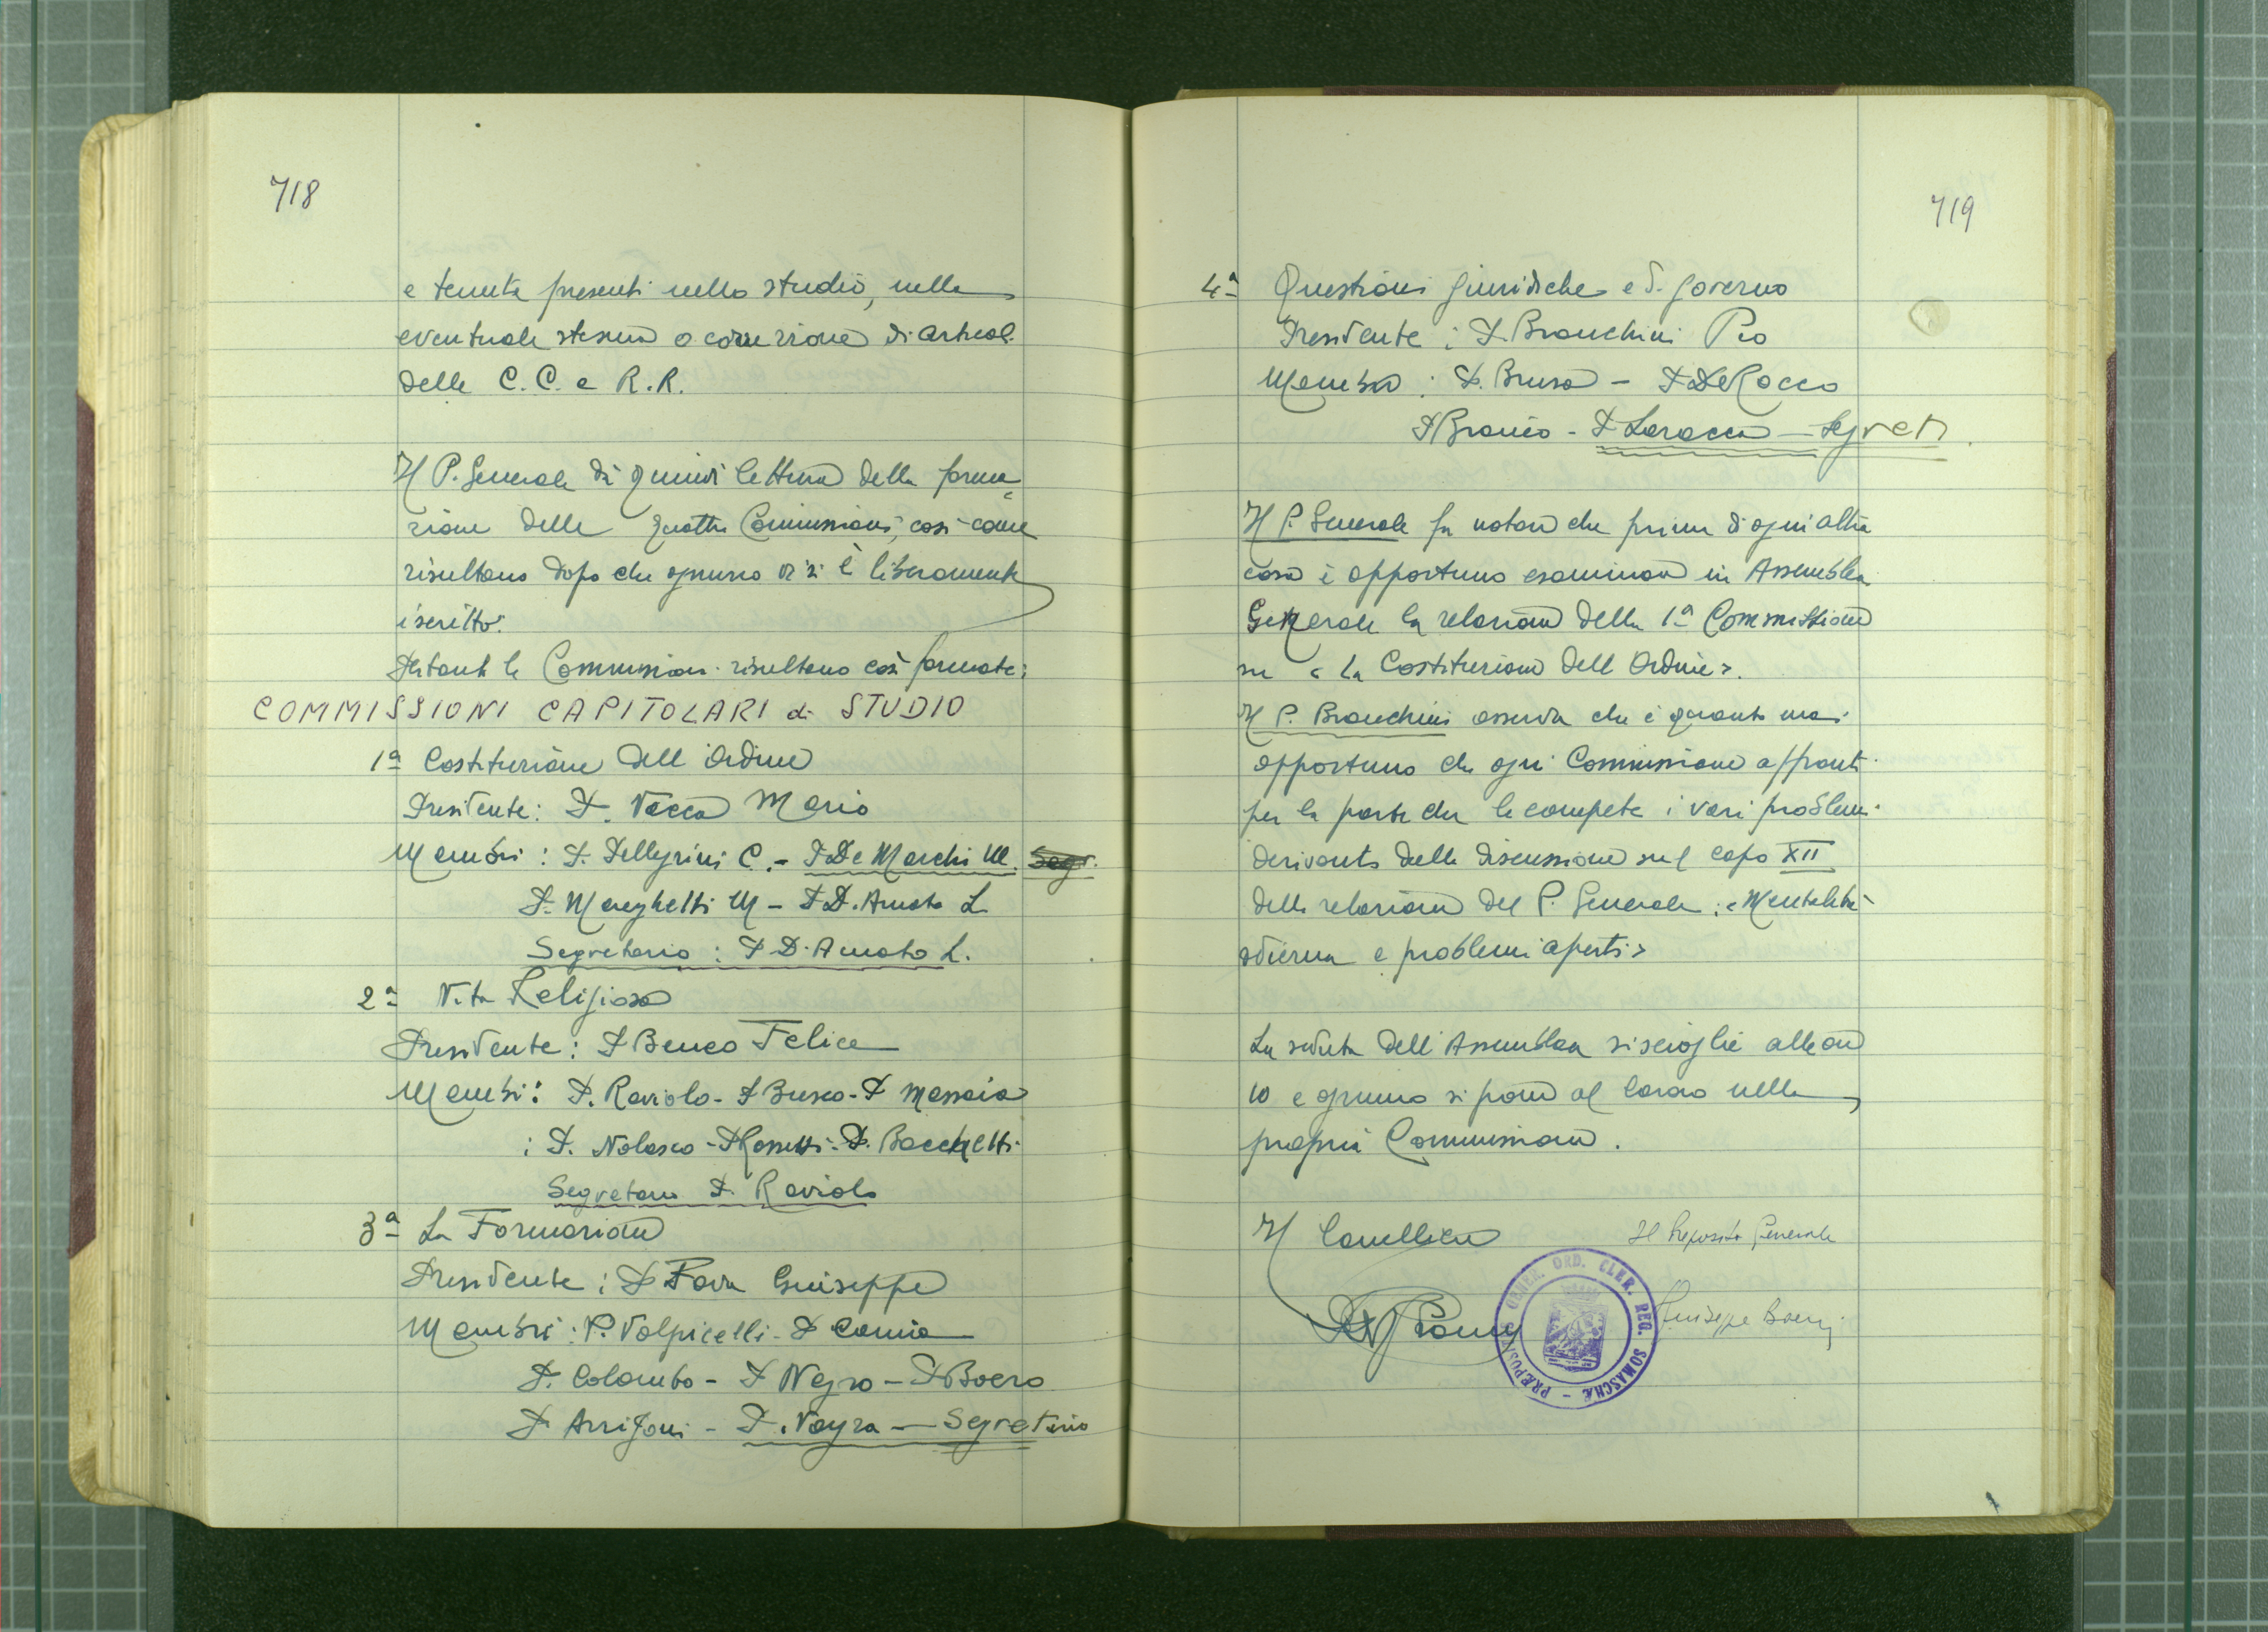 718
e tenute presenti nello studio, nella
eventuale stesura o correzione di articoli
delle C.C. e R.R.
Il P. Generale dà quindi lettura della forma=
zione delle quattro Commissioni, così come
risultano dopo che ognuno vi si è liberamente
iscritto.
Pertanto le Commissioni risultano così formate:
COMMISSIONI CAPITOLARI di STUDIO
1ª Costituzione dell'Ordine
Presidente: P. Vacca Mario
Membri: P. Pellegrini C. - P. De Marchi M. Segr.
P. Marghetti M - P. D'Amato L
Segretario: P. D'Amato L.
2ª Vita Religiosa
Presidente: P. Beneo Felice
Membri: P. Raviolo - P. Busco - P. Massaia
: P. Nolasco - P. Rossetti - P. Bacchetti
Segretario P. Raviolo
3ª La Formazione
Presidente: P. Fava Giuseppe
Membri: P. Volpicelli - P. Camia
P. Colombo - P. Negro - P. Boero
P. Arrigoni - P. Vayra - Segretario
719
4ª Questioni giuridiche e di governo
Presidente: P. Bianchini Pio
Membri: P. Brusa - P. De Rocco
P. Bianco - P. Laracca - Segret.
Il P. Generale fa notare che prima di ogni altra
cosa è opportuno esaminare in Assemblea
Generale la relazione della 1ª Commissione
su "La Costituzione dell'Ordine".
Il P. Bianchini osserva che è quanto mai
opportuno che ogni Commissione affronti
per la parte che le compete i vari problemi
derivanti dalla discussione sul capo XII
della relazione del P. Generale: "Mentalità
odierna e problemi aperti"
La seduta dell'Assemblea si scioglie alle ore
10 e ognuno si pone al lavoro nella
propria Commissione.
Il Cancelliere
Il Preposito Generale
Giuseppe Boeris
PRÆPOSIT. GENER. ORD. CLER. REG. SOMASCHÆ